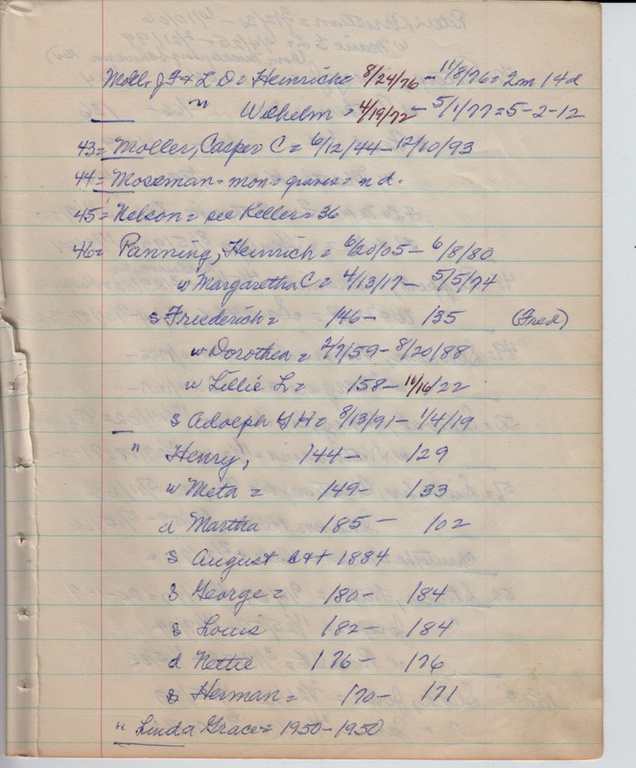 Moller J F & L D = Heinrich = 8/24/76 - 11/8/76 = 2m 14d
" Wilhelm = 4/19/72 - 5/1/77 = 5-2-12
43 = Moller, Casper C = 6/12/44 - 12/10/93
44 = Moseman = mon = graves = n d.
45 = Nelson = see Keller = 36
46 = Panning, Heinrich = 6/20/05 - 6/8/80
w Margaretha C = 4/13/17 - 5/5/74
s Friederich = 1846 - 1935 (Fred)
w Dorothea = 2/7/59 - 8/20/88
w Lillie L = 1858 - 11/16/22
s Adolph G H = 8/13/91 - 1/4/19
" Henry, 1844 - 1929
w Meta = 1849 - 1933
d Martha 1885 - 1902
s August 1884
s George = 1880 - 1884
s Louis 1882 - 1884
d Nettie 1876 - 1876
s Herman = 1870 - 1871
" Linda Grace = 1950 - 1950